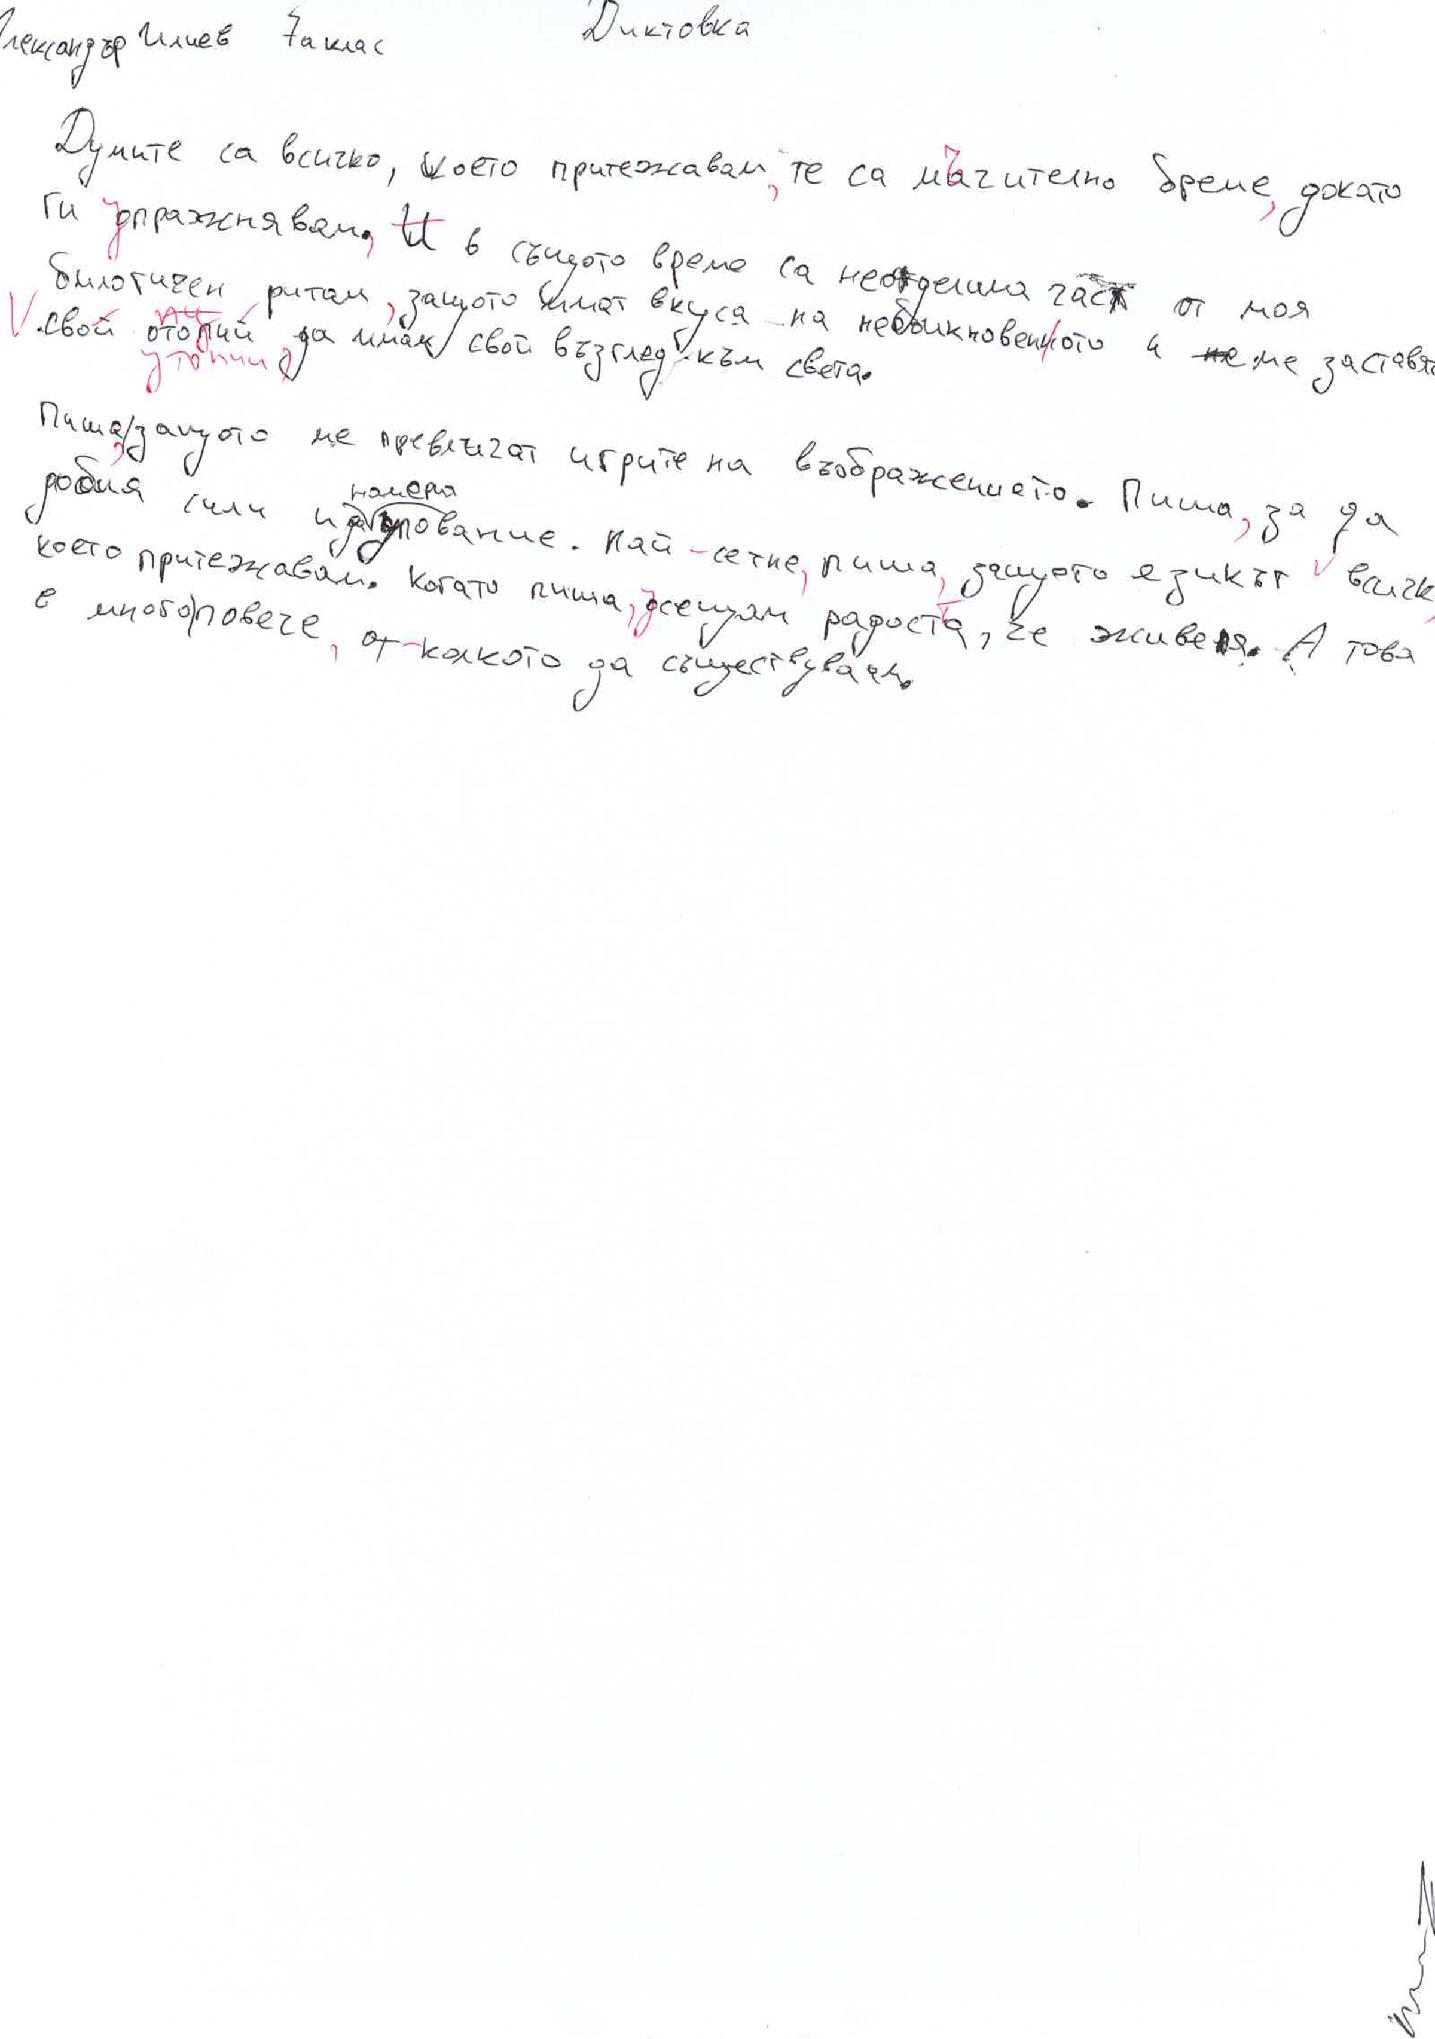 Александър Илиев 7а клас Диктовка
Думите са всичко, което притежавам, те са мъчително бреме, докато
ги упражнявам, И в същото време са неотделима част от моя
билогичен ритам, защото имат вкуса на необикновенното и ме заставят
свой отопий да имам свой възглед към света.
утопии,
Пиша, защото ме превличат игрите на въображението. Пиша, за да
добия сили и намеря
Най-сетне, пиша, защото езикът всичко,
което притежавам. Когато пиша, усещам радостта, че живея. А това
е много повече, от-колкото да съществувам.